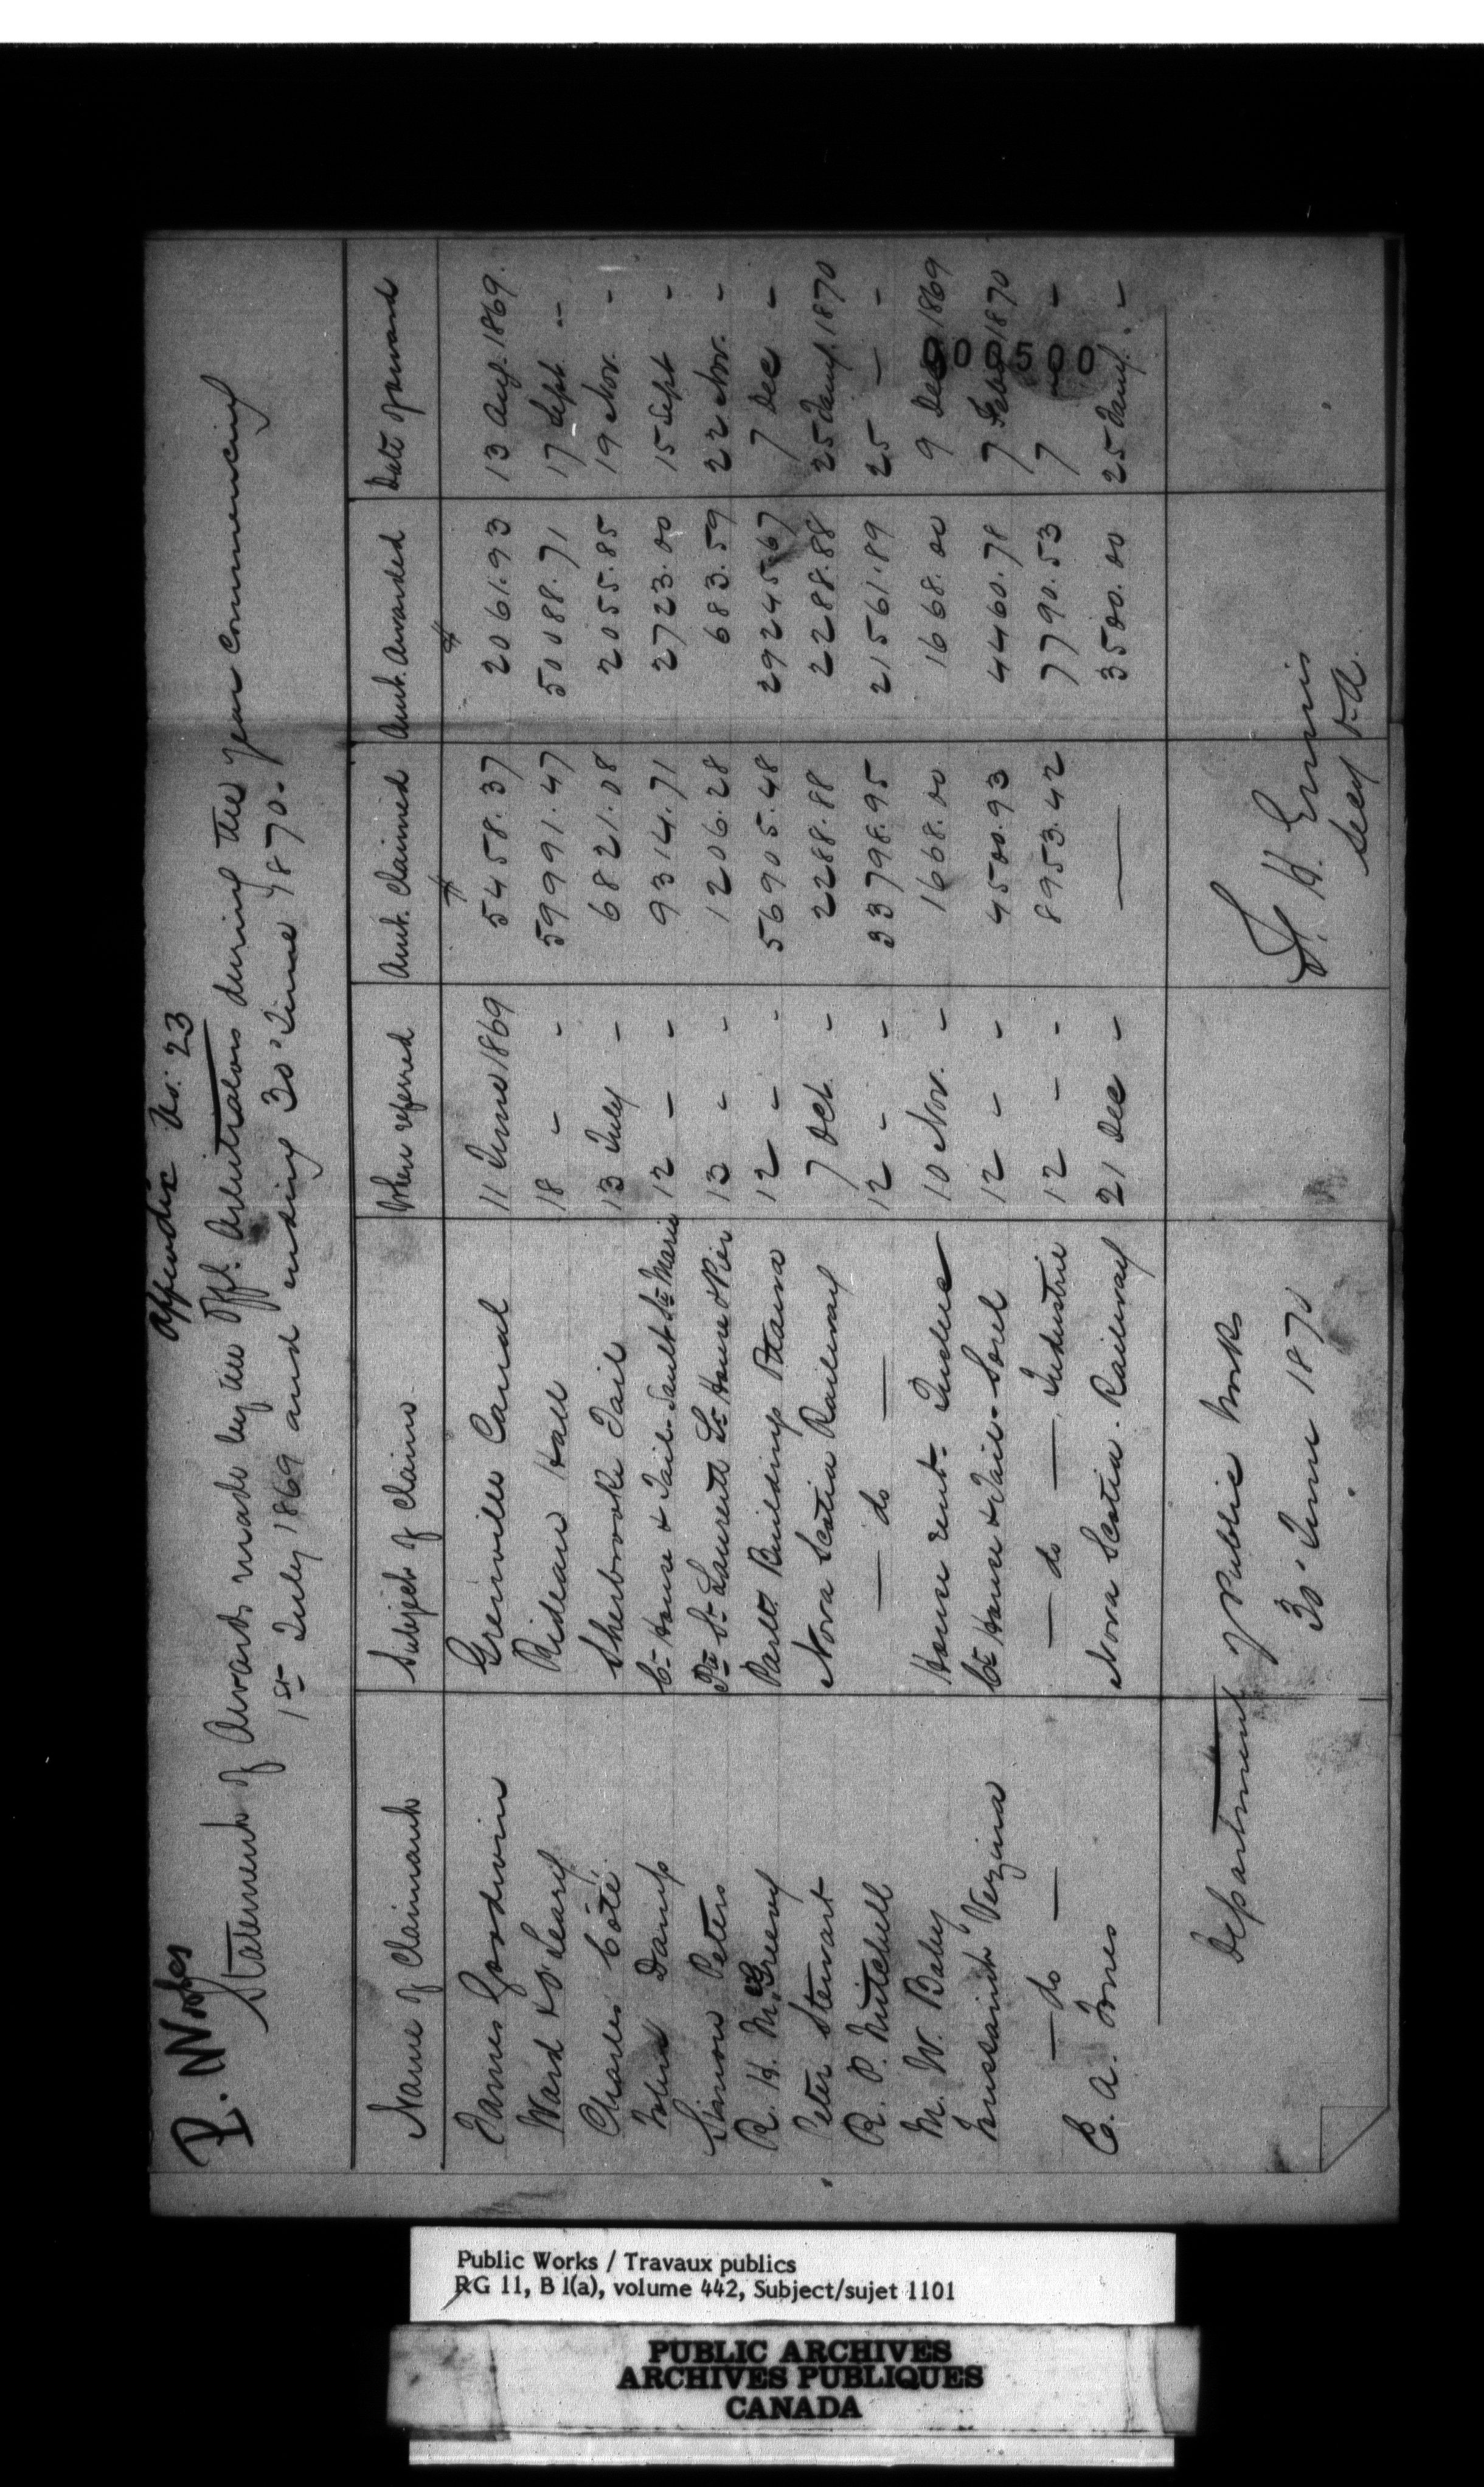 P. Works
Appendix No. 23
Statement of Awards made by the Offl. Arbitrators during the year commencing
1st July 1869 and ending 30" June 1870.
Name of Claimant Subject of Claim When referred Amt. Claimed Amt. Awarded Date of award
$ $
James Goodwin Grenville Canal 11 June 1869 5458.37 2061.93 13 Aug. 1869.
Ward & O'Leary Rideau Hall 18 - - 59991.47 50088.71 17 Sept. --
Charles Coté Sherbrooke Jail 13 July - 6821.08 2055.85 19 Nov. -
John Damp Ct House & Jail Sault Ste Marie 12 - - 9314.71 2723.00 15 Sept -
Simon Peters St Laurent Lt House & Pier 13 - - 1206.28 683.59 22 Nov. -
R. H. McGreevy Parlt. Buildings Ottawa 12 - - 56905.48 29245.67 7 Dec -
Peter Stewart Nova Scotia Railway 7 Oct. - 2288.88 2288.88 25 Jany. 1870
R. P. Mitchell — do — 12 - - 33798.95 21561.89 25 — -
M. W. Baby House rent Quebec 10 Nov. - 1668.00 1668.00 9 Dec 1869
Toussaint Vezina Ct House & Jail - Sorel 12 - - 4500.93 4460.78 7 Feby 1870
— do — — do — Industrie 12 - - 8953.42 7790.53 7 - -
C. A. Jones Nova Scotia Railway 21 Dec - — 3500.00 25 Jany. -
000500
Department of Public Works
30" June 1870
H. Ennis
Secy O.A.
Public Works / Travaux publics
RG 11, B 1(a), volume 442, Subject/sujet 1101
PUBLIC ARCHIVES
ARCHIVES PUBLIQUES
CANADA